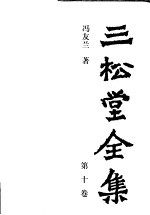 三松堂全集
冯友兰 著
第十卷